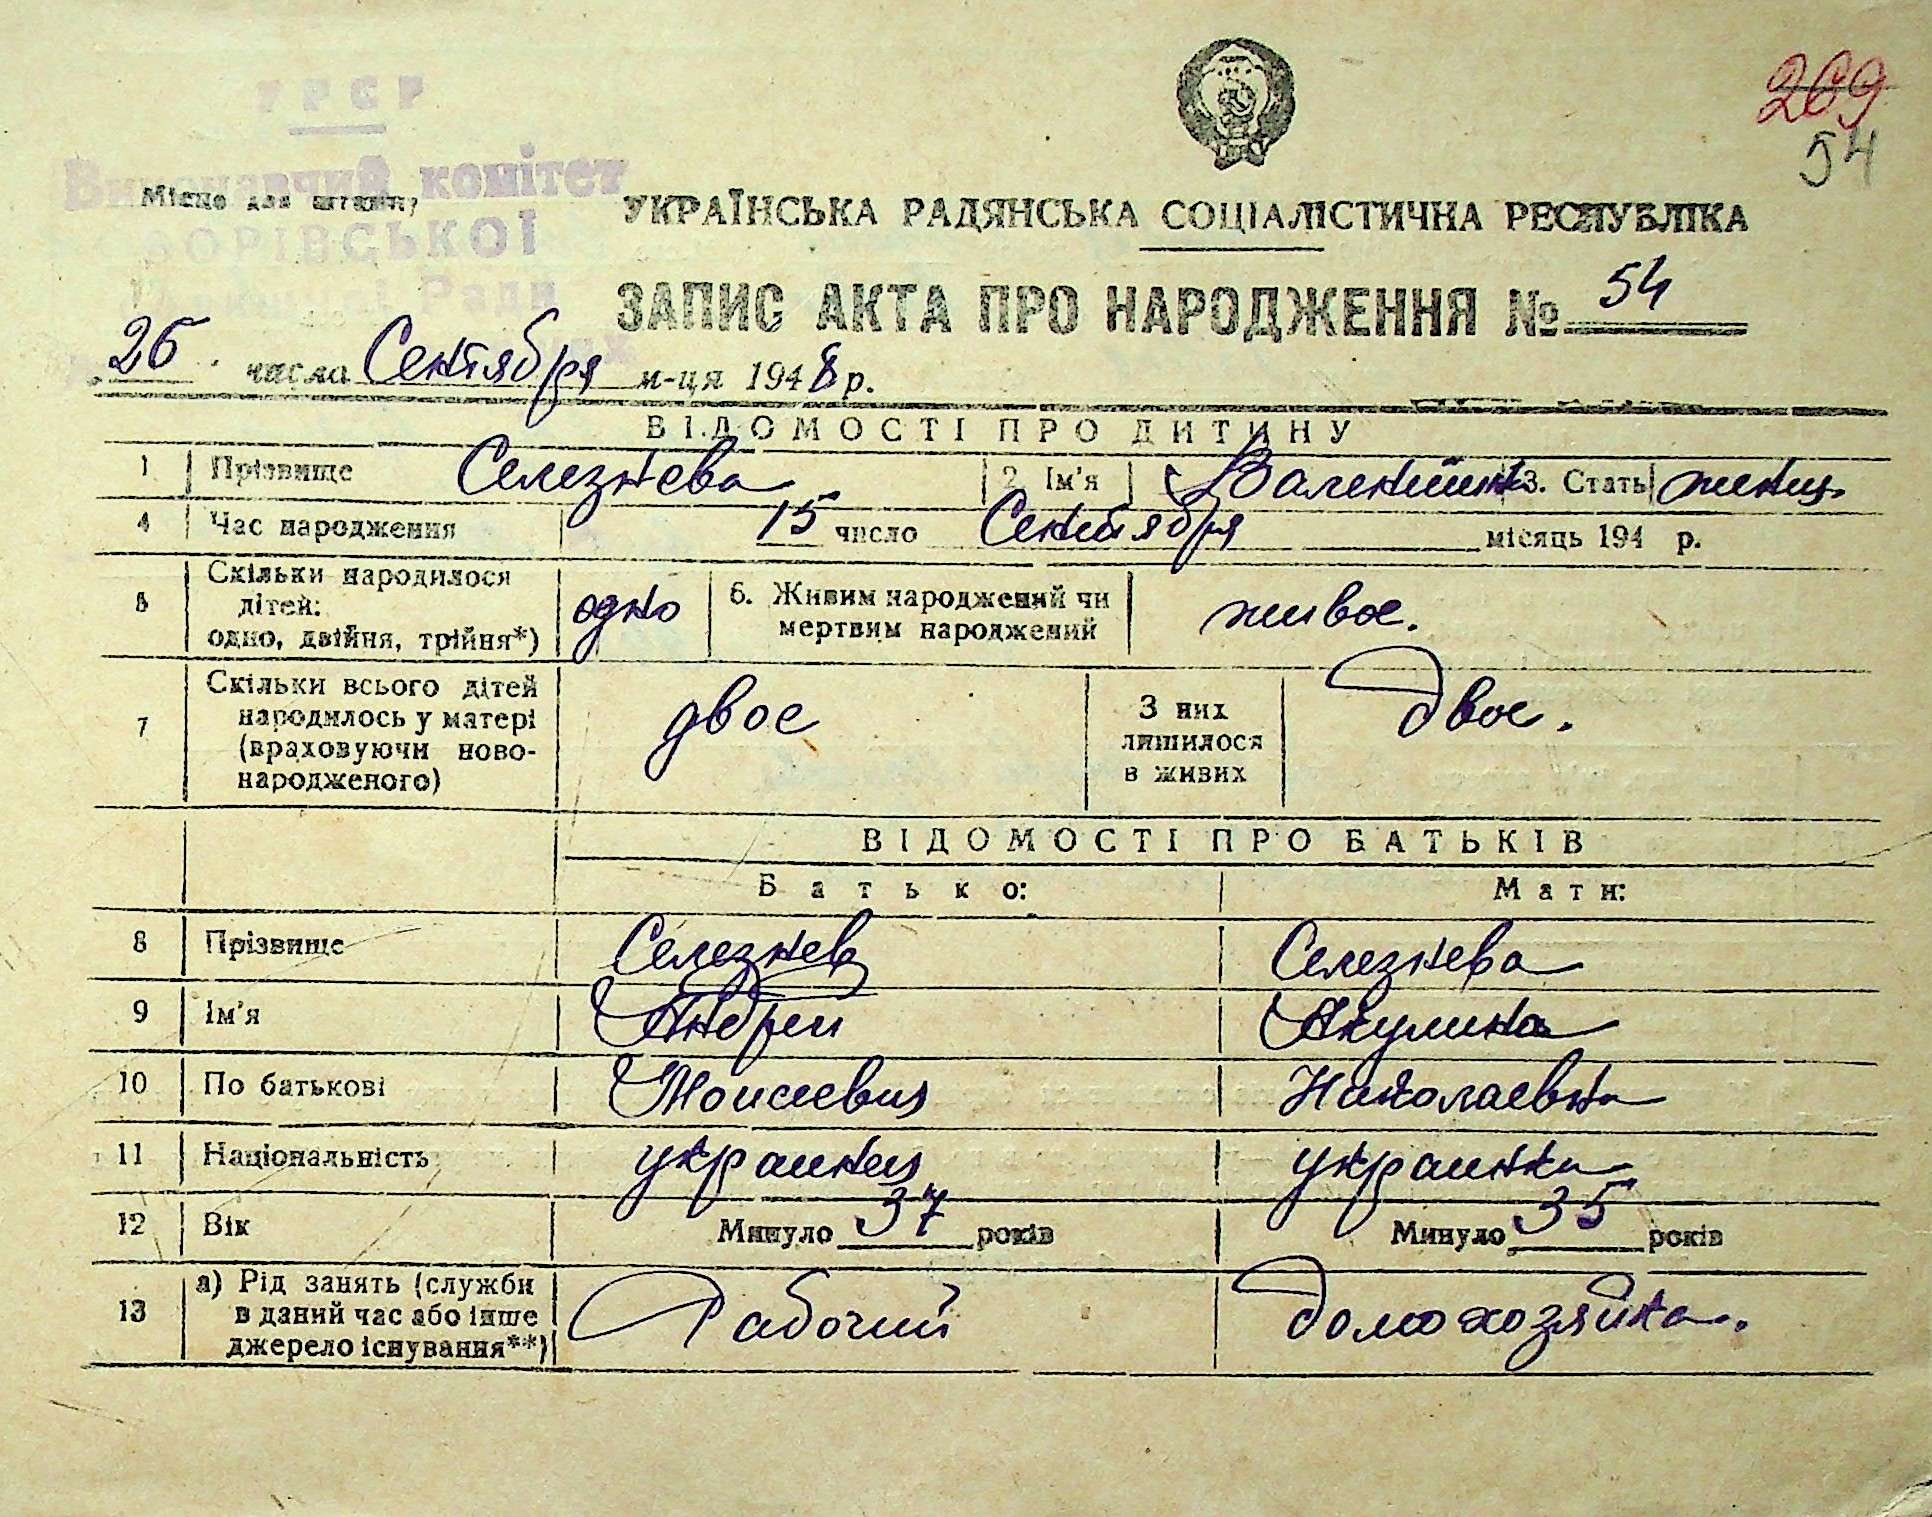 УРСР
269
54
Виконавчий комітет
Місце для штампу
УКРАЇНСЬКА РАДЯНСЬКА СОЦІАЛІСТИЧНА РЕСПУБЛІКА
Ради
ЗАПИС АКТА ПРО НАРОДЖЕННЯ № 54
26 числа Сентября м-ця 1948 р.
ВІДОМОСТІ ПРО ДИТИНУ
1 Прізвище Селезнева 2. Ім'я Валентина 3. Стать женщ.
4 Час народження 15 число Сентября місяць 194 р.
5 Скільки народилося дітей: одно, двійня, трійня*) одно 6. Живим народжений чи мертвим народжений живое.
7 Скільки всього дітей народилось у матері (враховуючи новонародженого) двое З них лишилося в живих Двое.
ВІДОМОСТІ ПРО БАТЬКІВ
Батько: Мати:
8 Прізвище Селезнев Селезнева
9 Ім'я Андрей Акулина
10 По батькові Моисеевич Николаевна
11 Національність украинец украинка
12 Вік Минуло 37 років Минуло 35 років
13 а) Рід занять (служби в даний час або інше джерело існування**) Рабочий Домохозяйка.